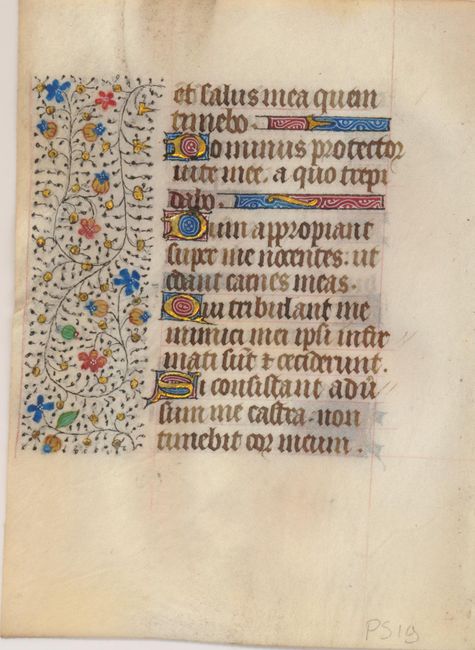 et salus mea quem
timebo.
Dominus protector
vite mee. a quo trepi
dabo.
Dum appropiant
super me nocentes. ut
edant carnes meas.
Qui tribulant me
inimici mei ipsi infir
mati sūt ⁊ ceciderunt.
Si consistant adū
sum me castra. non
timebit cor meum.
PS 19